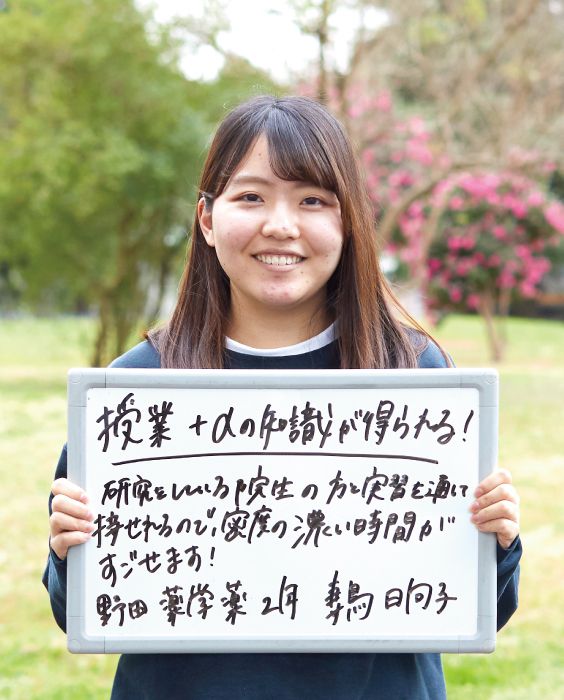 授業 +αの知識が得られる!
研究をしている院生の方と実習を通して
接せれるので、密度の濃い時間が
すごせます!
野田 薬学 薬 2年 日向子